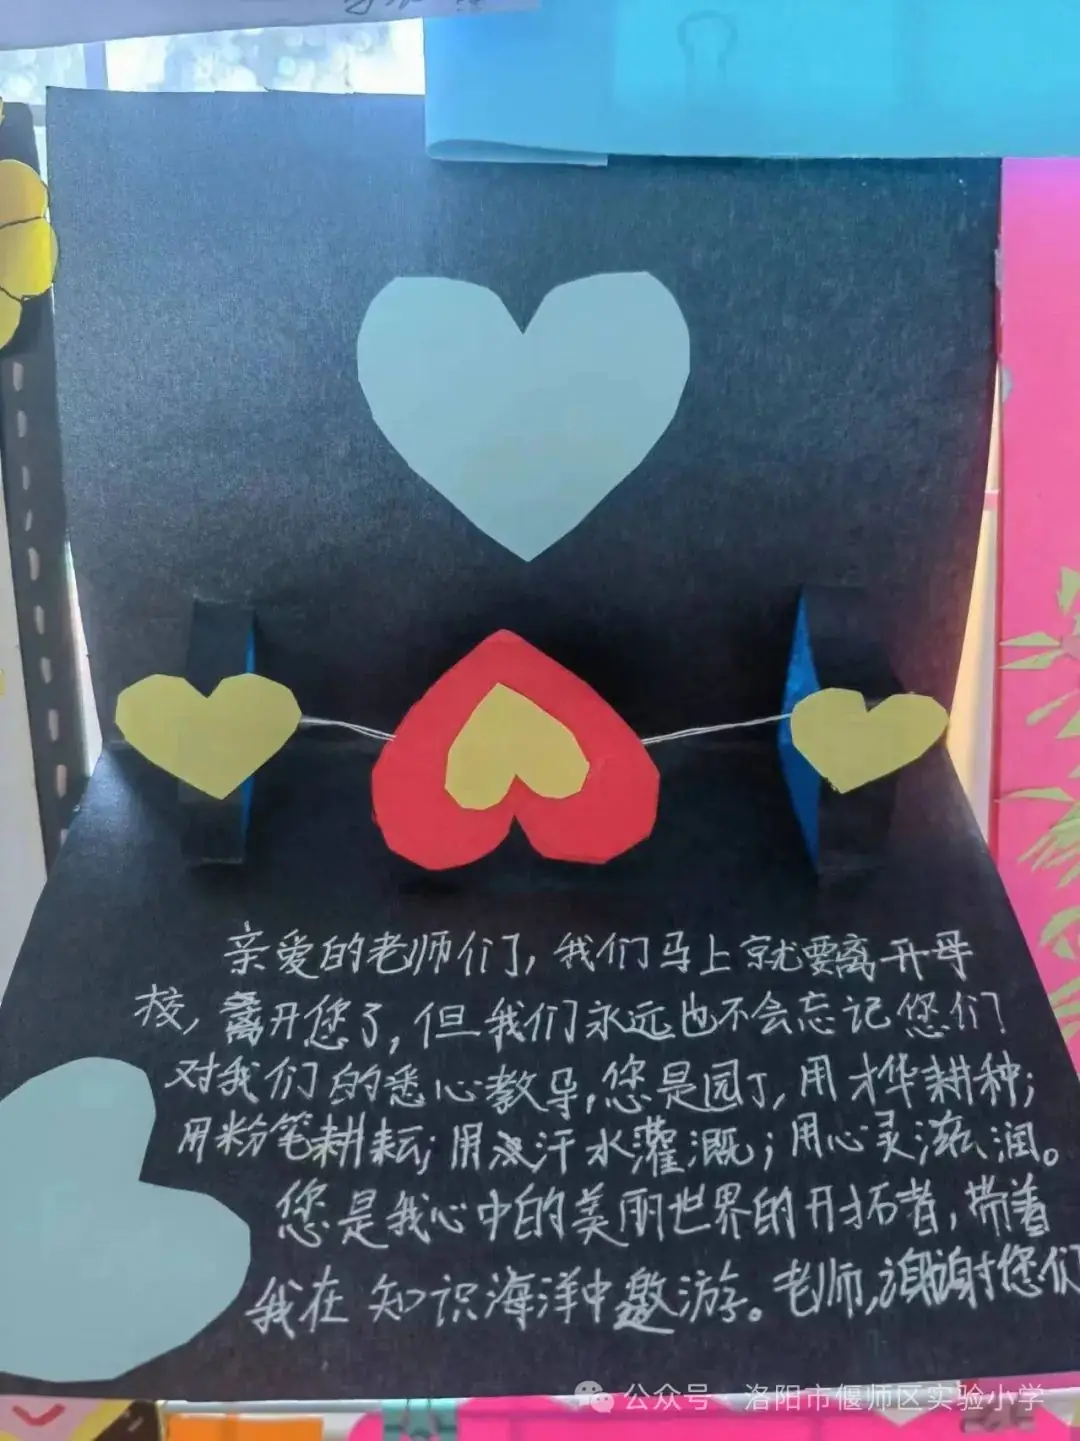 亲爱的老师们，我们马上就要离开母
校，离开您了，但我们永远也不会忘记您们
对我们的悉心教导，您是园丁，用才华耕种；
用粉笔耕耘；用汗水灌溉；用心灵滋润。
您是我心中的美丽世界的开拓者，带着
我在知识海洋中遨游。老师，谢谢您们
公众号 · 洛阳市偃师区实验小学